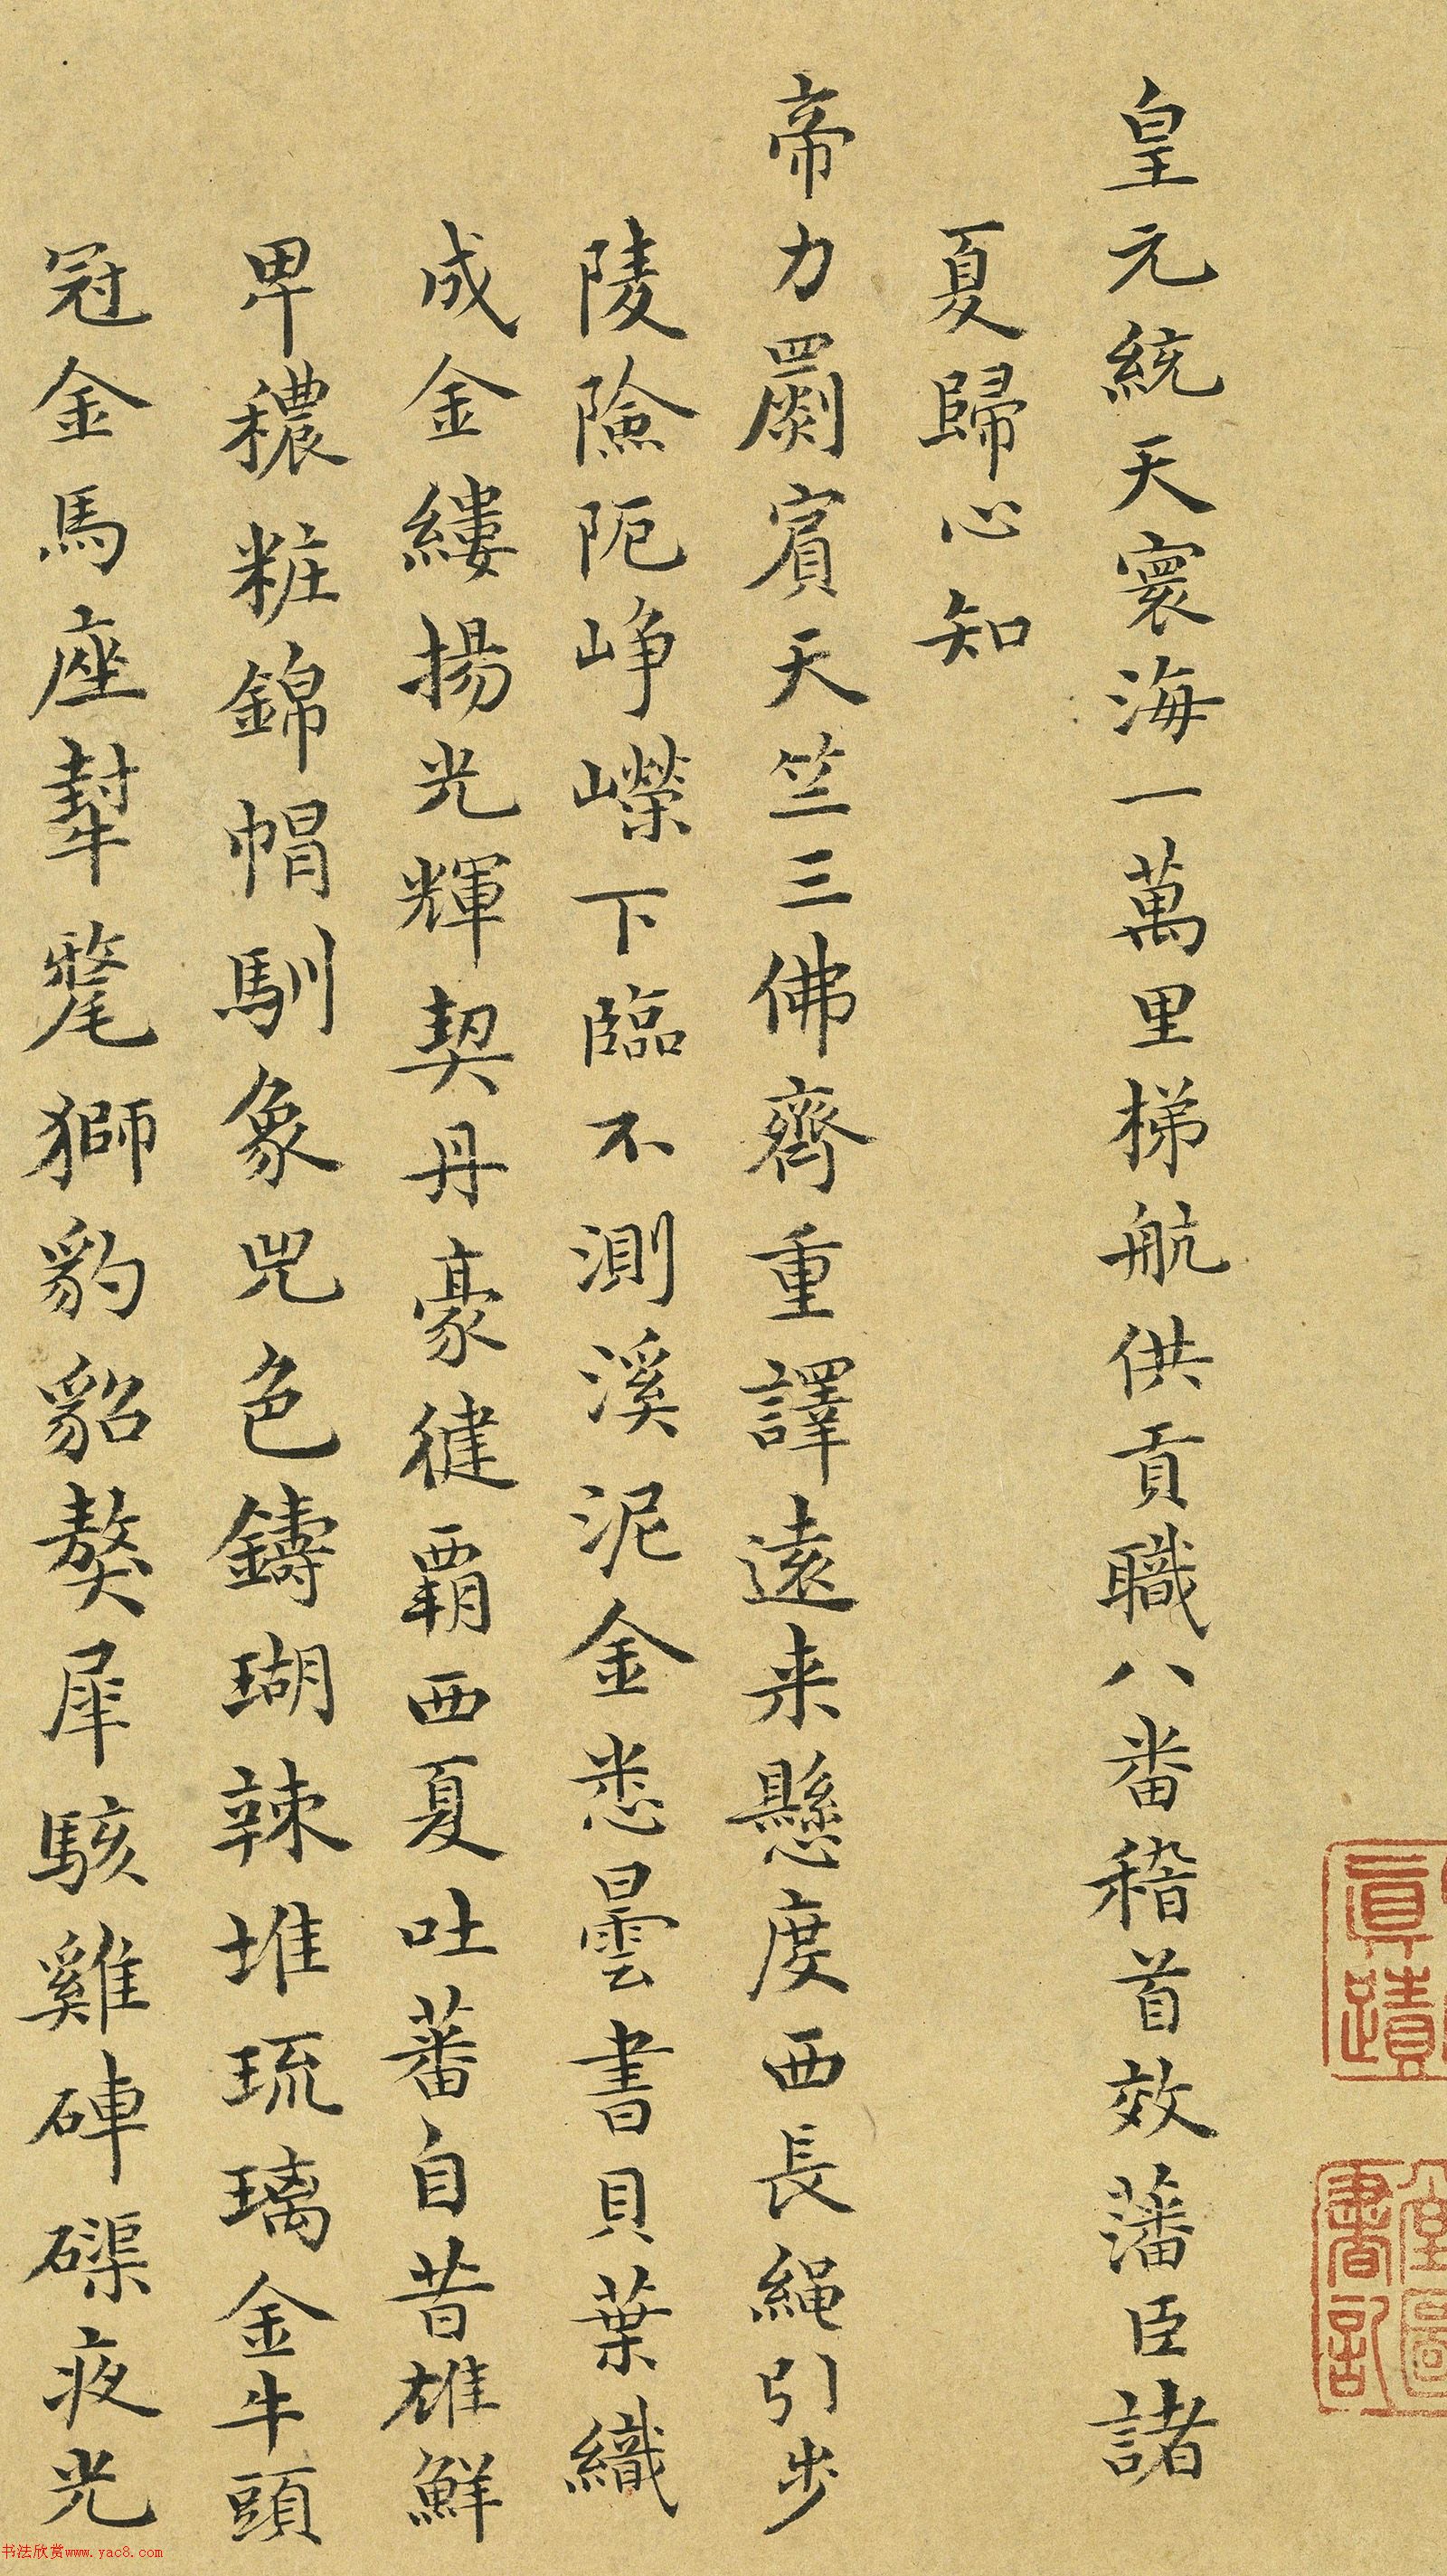 皇元統天寰海一萬里梯航供貢職八番稽首效藩臣諸
夏歸心知
帝力罽賓天竺三佛齊重譯遠来懸度西長繩引步
陵險阨崢嶸下臨不測溪泥金悉曇書貝葉織
成金縷揚光輝契丹豪健覇西夏吐蕃自昔雄鮮
卑穠粧錦帽馴象兕色鑄瑚辣堆琉璃金牛頭
冠金馬座犎氂獅豹貂獒犀駭雞硨磲夜光
真蹟
書記
书法欣赏www.yac8.com